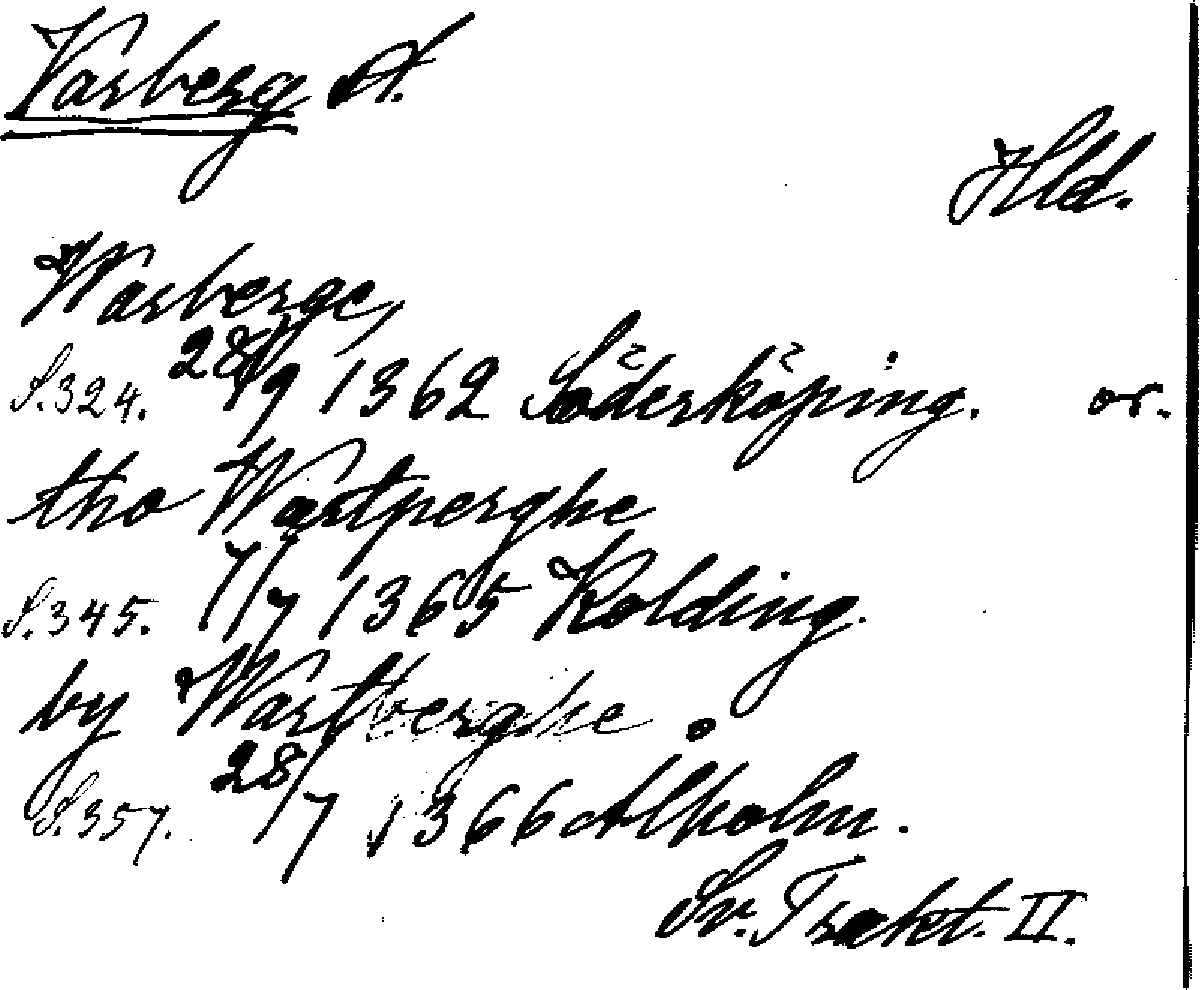 Varberg st.
Hld.
Warberge,
S.324. 28/9 1362 Söderköping. or.
tho Wartperghe
S.345. 7/7 1365 Kolding.
by Wartberghe
S.357. 28/7 1366 Ålholm.
Sv. Trakt. II.